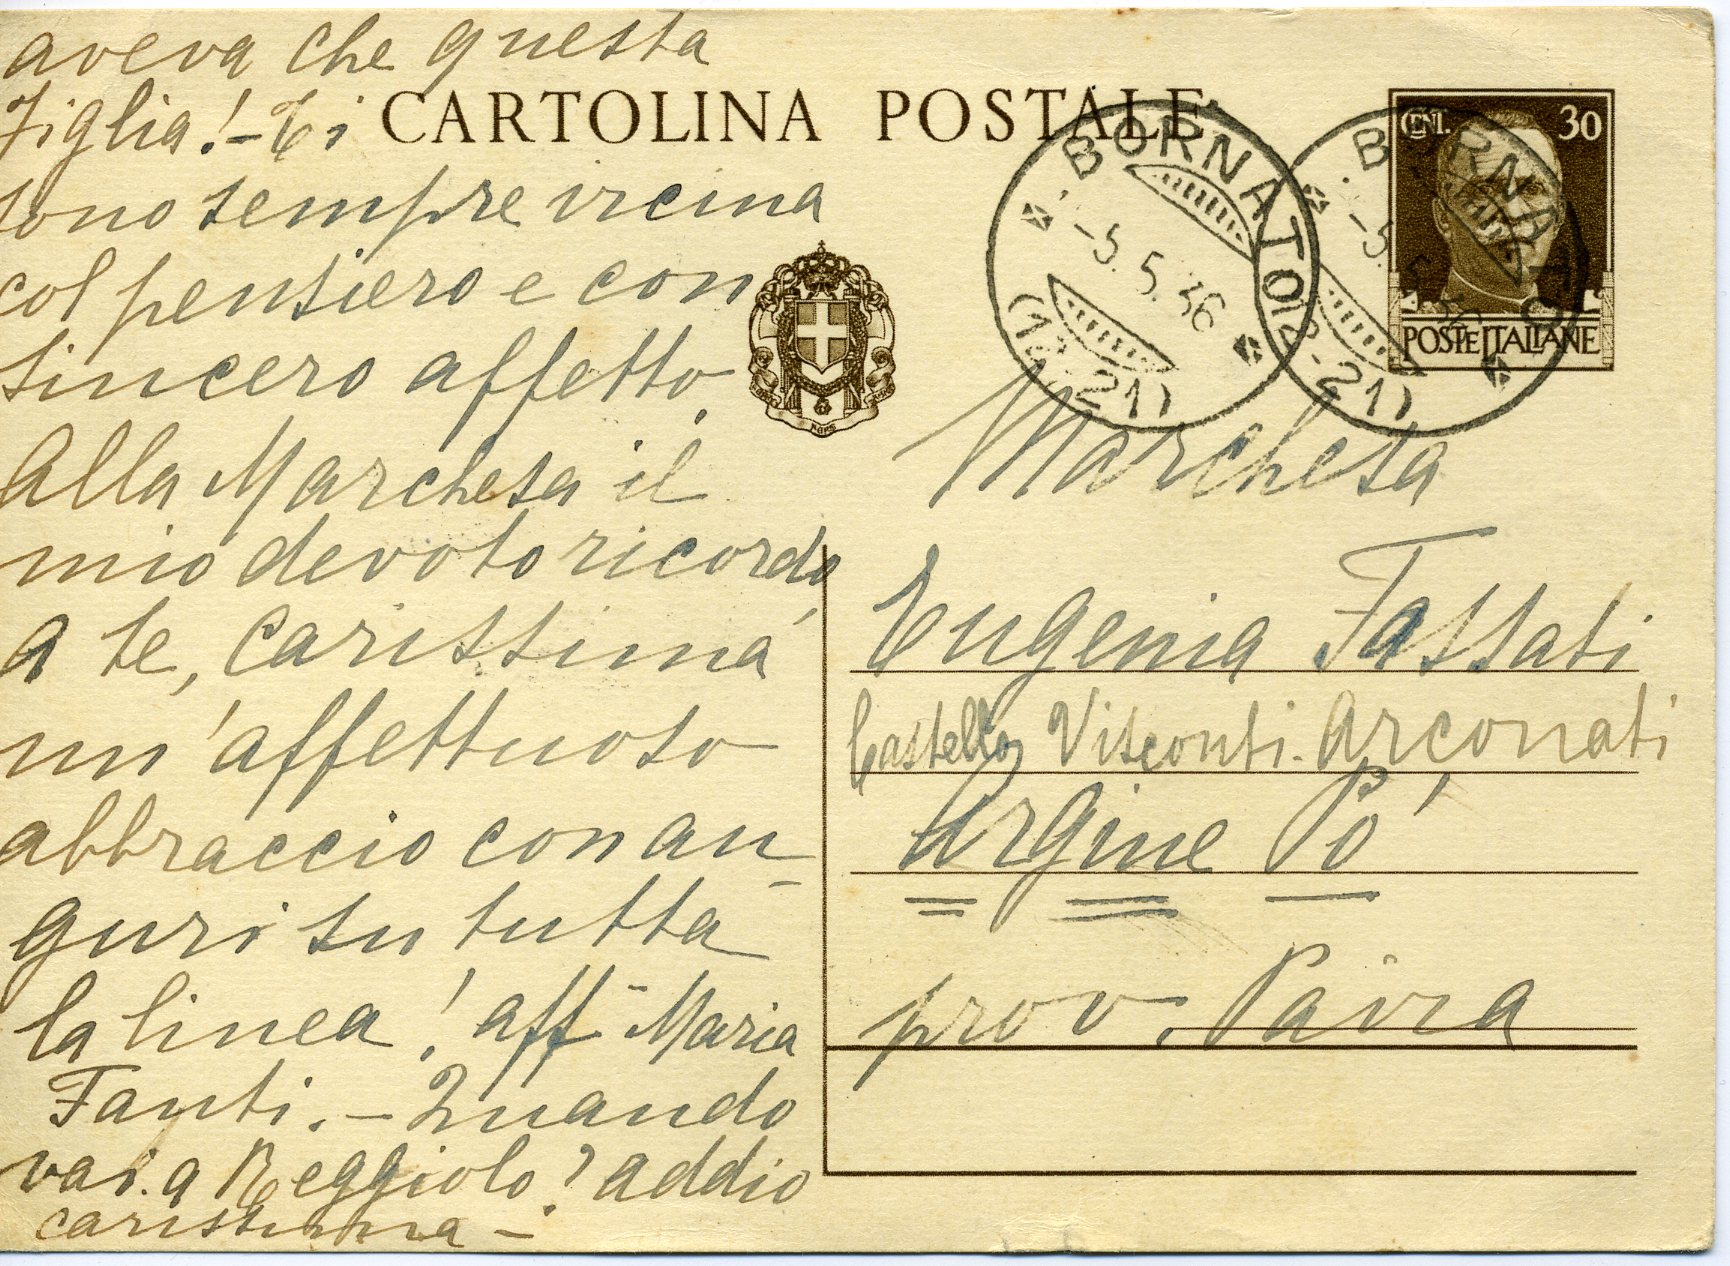 aveva che questa
Figlia! - Ti
sono sempre vicina
col pensiero e con
sincero affetto.
Alla Marchesa il
mio devoto ricordo,
a te, carissima
un'affettuoso
abbraccio con au-
guri su tutta
la linea! aff- Maria
Fanti. - Quando
vai a Reggiolo? addio
carissima -
CARTOLINA POSTALE
CENT. 30
POSTE ITALIANE
BORNATO
-5.5.36
(18-21)
BORNATO
-5.5.36
(18-21)
FERT
Marchesa
Eugenia Fassati
Castello Visconti-Arconati
Argine Pò
prov. Pavia